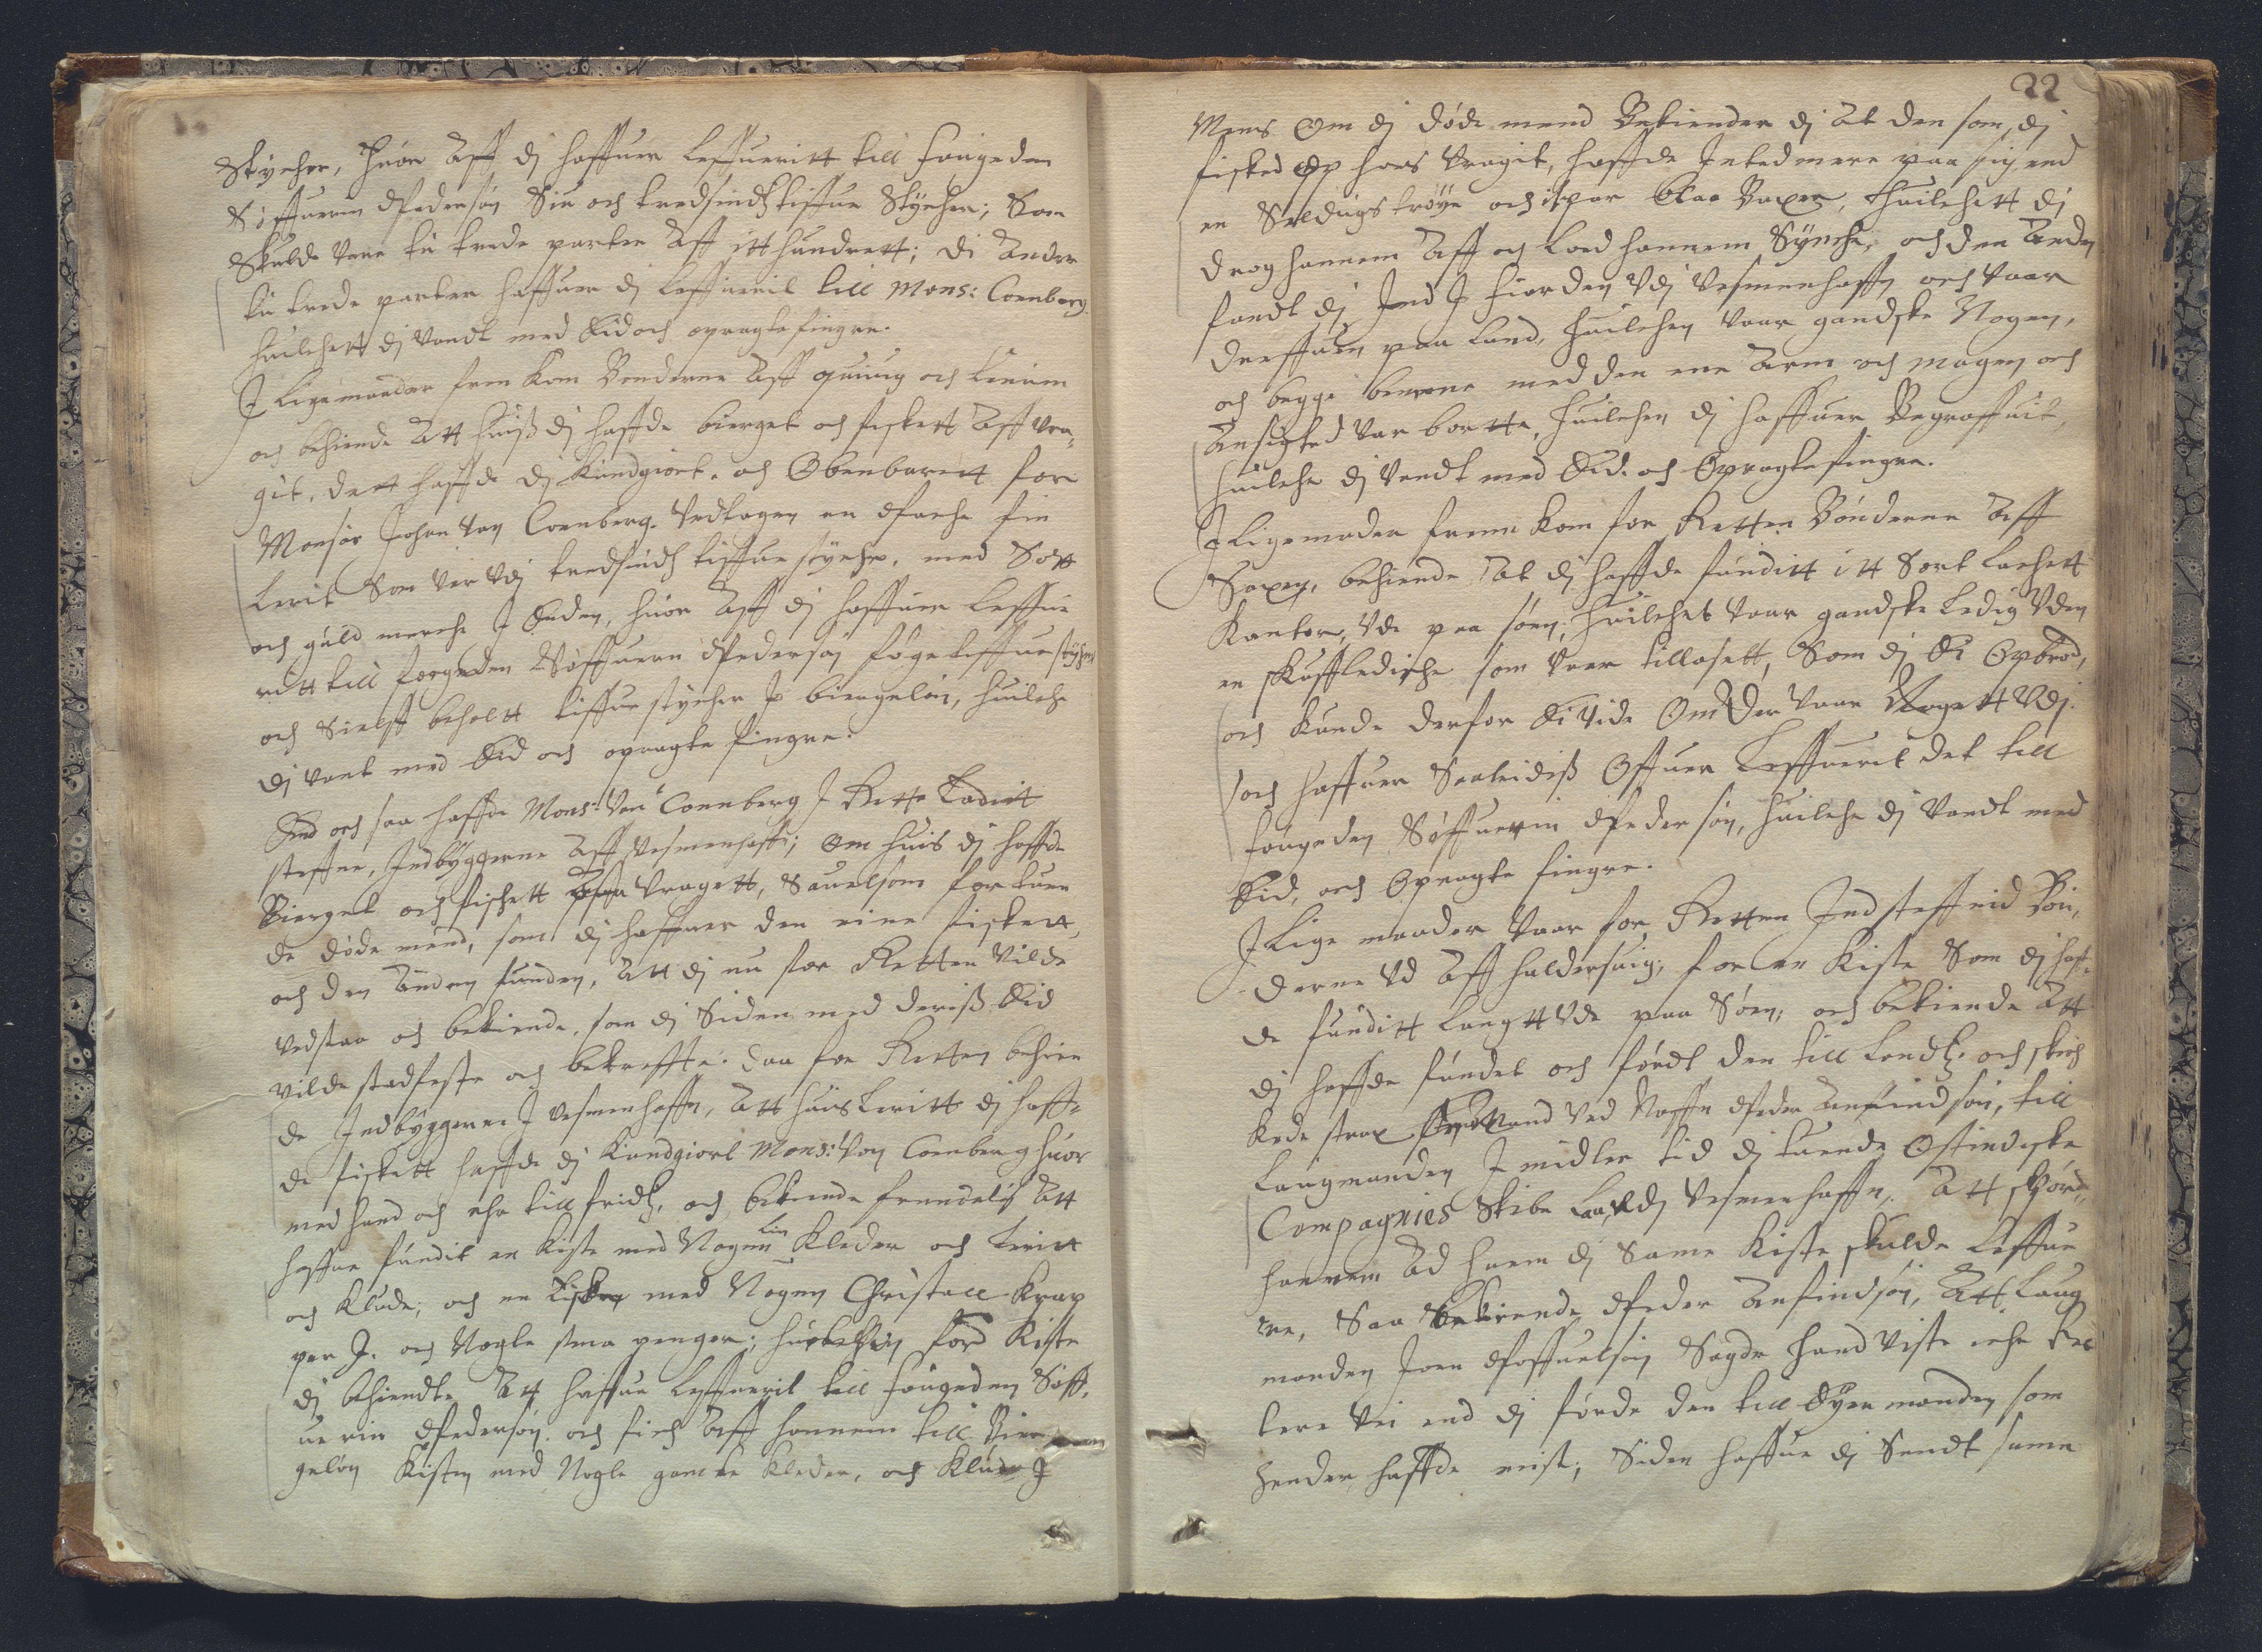 Stycher, huor Aff dj haffuer leffueritt till fougeden
Söffueren Pedersøn Siu och tredsinds tiffue Stycher; Som
Skulde vere tu trede parter Aff itt hundrett; di Andre
tu trede parter haffuer dj leffuerit till Mons: Cornberg
huilchett dj vandt med Eid och opragte fingre.
I lige maader frem kom Bønderne Aff quiuig och Leinum
och bekiende Att huis dj haffde bierget och fiskett Aff vra,
git, dett haffde dj kundgiort, och Obenbarett for
Monsør Johan Von Cornberg. Undtagen en Packe fin
Lerit Som var vdj tredsinds tiffue stycher, med Sort
och guld merche I Enden, huor Aff dj haffuer leffue
ritt till fougeden Søffueren Pedersøn fyretiffue stycher
och Sielff beholt tiffue stycher J biergeløn, huilche
dj vant med Eid och opragte fingre.
End och saa haffde Mons: Von Cornberg I Rette Ladit
steffne, Indbyggerne Aff Vesmenhaffn; Om huis dj haffde
Bierget och fiskett fra Vragett, Sauelsom for tuen
de døde mend, som dj haffuer den eine fiskett,
och den Anden funden, Att dj nu for Retten Vilde
vedstaa och bekiende, som dj Siden med deris Eid
vilde stadfeste och bekreffte. Daa for Retten bekien
de Indbyggerne I vesmenhaffn, Att huis Leritt dj haff-
de fiskett haffde dj Kundgiort Mons: Von Cornberg huor
med hand och ehr till fridtz, och bekiende fremdelis Att
haffue fundit en Kiste med Nogen Lin Kleder och Leritt
och Klude; och en Eisken med Nogen Christall Knap
per J. och Nogle sma penger; huilchen ford Kiste
dj bekiendte Att haffue leffuerit till fougeden Søff,
ueren Pedersøn. och fich Aff hannem till Bier
geløn Kisten med Nogle gamle Kleder, och Klude J
22
Mens Om dj døde mend Bekiender dj At den som, dj
fisked op hoes vragit, haffde Inted mere paa sig end
en Seldugs trøye och itt par blaa Boxer, huilchett dj
drog hannem Aff och lod hannem Synche, och den Anden
fandt dj Ind J fiorden vdj Vesmenhaffn och vaar
dreffuen paa Land, huilchen vaar gandske Nogen,
och begge benene med den ene Arm och magen och
Ansigted var bortte, huilchen dj haffuer Begraffuit,
huilche dj vandt med Eid. och Opragte fingre.
I Ligemader fremm kom for Retten Bønderne Aff
Saxen, bekiende At dj haffde funditt itt Sort Lachett
Kantor, vde paa søen, huilchet vaar gandske ledig vden
en skuffledische som vaar tillaset, Som dj Ei Opbrød,
och kunde derfor Ei vide Om der vaar Nogett vdj.
och haffuer Saaleidiss Offuer Leffuerit det till
fougeden Søffueren Pedersøn, huilche dj vandt med
Eid, och Opragte fingre.
I Lige maader vaar for Retten Indsteffnid Bøn,
derne Ud Aff haldersuig; for en Kiste Som dj haff,
de funditt langtt vde paa Søen; och bekiende Att
dj haffde fundet och førdt den till Landtz, och skich
kede strax Mand ved Naffn Peder Anfindsøn, till
Laugmanden I midler tid dj tuende Ostindiske
Compagnies Skibe laa vdj Vesmenhaffn. Att spørd,
hannem Ad huem dj Same Kiste skulde leffue
re, Saa bekiende Peder Anfindsøn, Att Laug
manden Joen Poffuelsøn Sagde hand viste iche Bed
tere vei end dj førde den till Øyer manden som
hender haffde mist; Siden haffue dj Sendt same